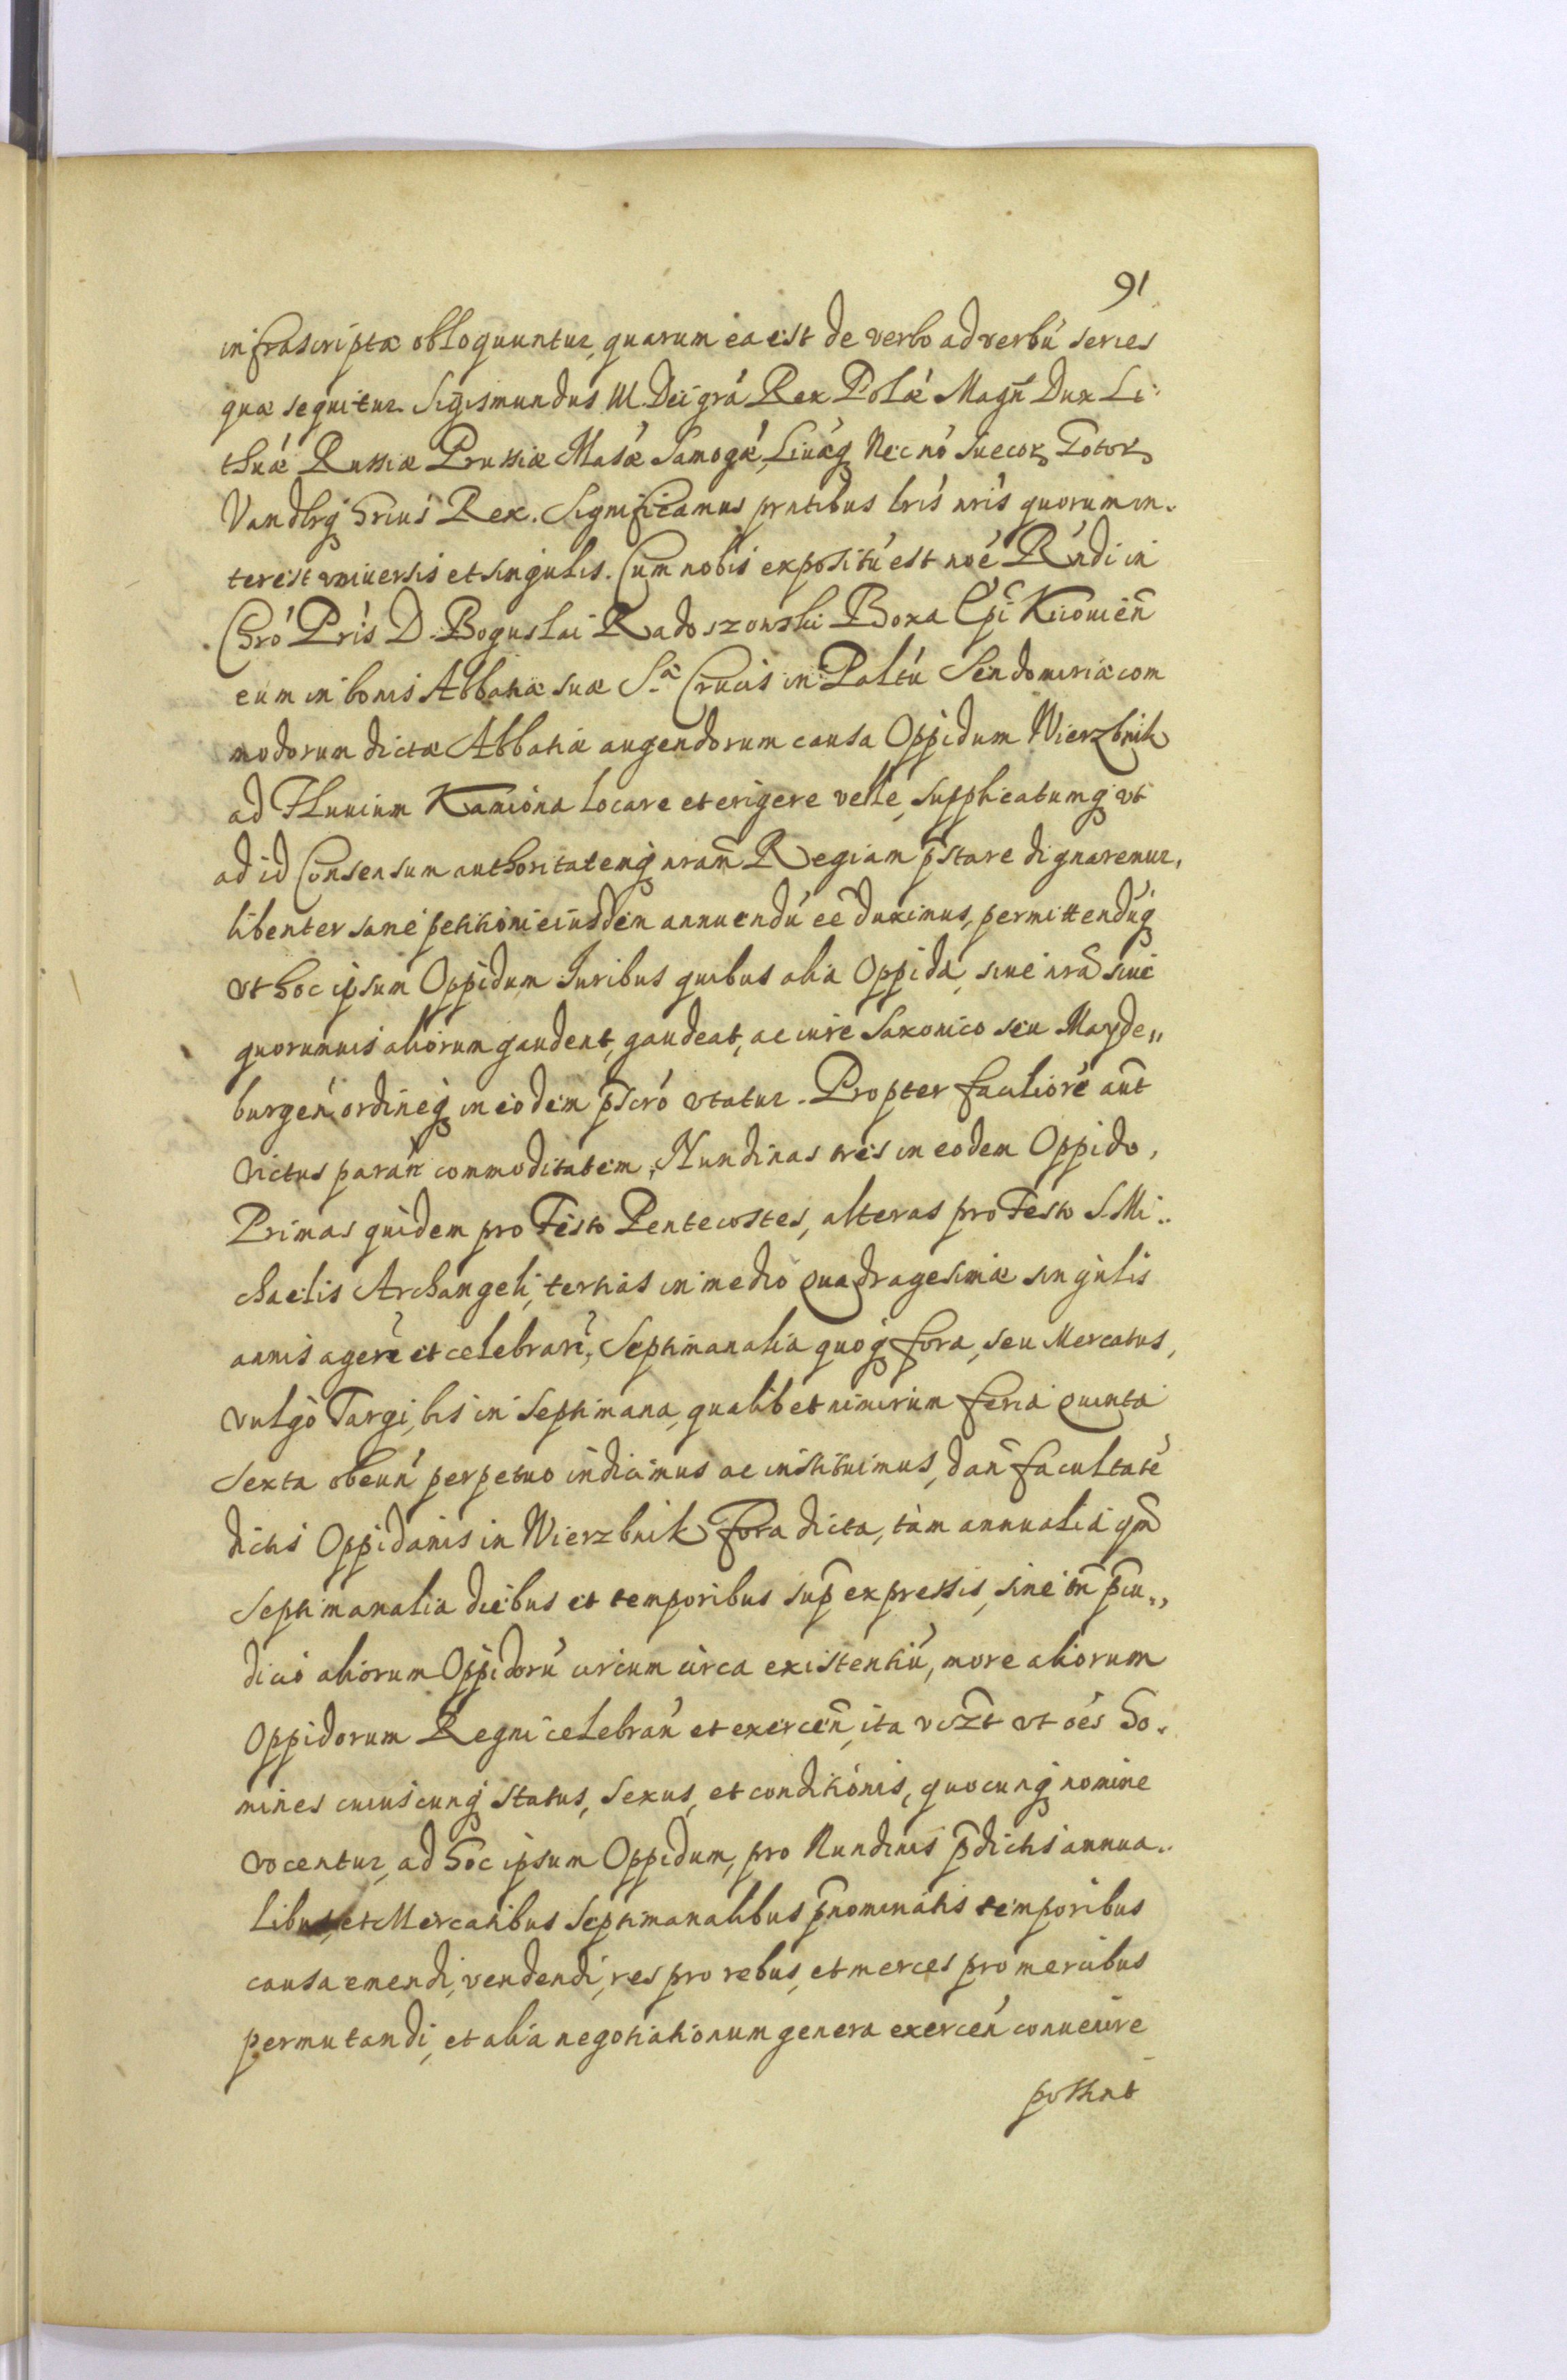 91
infrascriptæ obloquuntur, quarum ea est de verbo ad verbú series
quæ sequitur. Sigismundus III Dei grá Rex Polæ Magñ Dux Li-
thuæ Russiæ Prussiæ Masæ Samogæ, Liuæq Nec nó Suecor Gotor
Vandlrq hrius Rex. Significamus pntibus lris nris quorum in-
terest vniuersis et singulis. Cum nobis expositú est noé Rńdi in
Chró Pris D. Boguslai Radoszowski Boxa Epi Kiiouień
eum in bonis Abbatiæ suæ S.æ Crucis in Paltú Sendomiriæ com
modorum dictæ Abbatiæ augendorum causa Oppidum Wierzbnik
ad Fluuium Kamiona locare et erigere velle, supplicatumq vt
ad id Consensum authoritatemq nram Regiam p̃stare dignaremur,
libenter sane petitioni eiusdem annuendú eé duximus, permittendúq
vt hoc ipsum Oppidum Iuribus quibus alia Oppida, siue nra siue
quorumuis aliorum gaudent, gaudeat, ac iure Saxonico seu Mayde„
burgeń ordineq in eodem p̃scró vtatur. Propter faciliore aut̃
victus parań commoditatem, Nundinas tres in eodem Oppido,
Primas quidem pro Festo Pentecostes, alteras pro Festo S. Mi-
chaelis Archangeli, tertias in medio Quadragesimæ singulis
annis ageñ et celebrań, Septimanalia quoq fora, seu Mercatus,
vulgo Targi, bis in Septimana, qualibet nimirum feria quinta
Sexta obeuń perpetuo indicimus ac instituimus, dań facultaté
dictis Oppidanis in Wierzbnik Fora dicta, tam annualia qm̃
Septimanalia diebus et temporibus sup̃ expressis, sine tñ p̃iu„
dicio aliorum Oppidorú circum circa existentiú, more aliorum
Oppidorum Regni celebrań et exerceń, ita vizt vt oés ho-
mines cuiuscunq status, sexus, et conditionis, quocunq nomine
vocentur, ad hoc ipsum Oppidum, pro Nundinis p̃dictis annua-
libus, et Mercatibus Septimanalibus p̃nominatis temporibus
causa emendi, vendendi, res pro rebus, et merces pro mercibus
permutandi, et alia negotiationum genera exerceń conuenire
possint